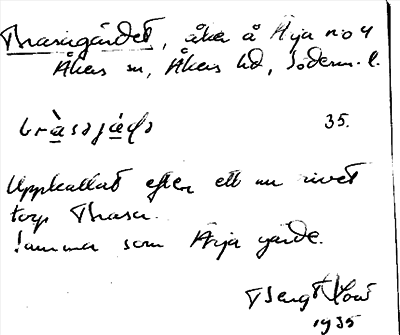 Trasagärdet, åker å Ärja no 4
Åkers sn, Åkers hd, Söderm. l.
35.
Uppkallat efter ett nu rivet
torp Trasa.
Samma som Ärja gärde.
Bengt
1935